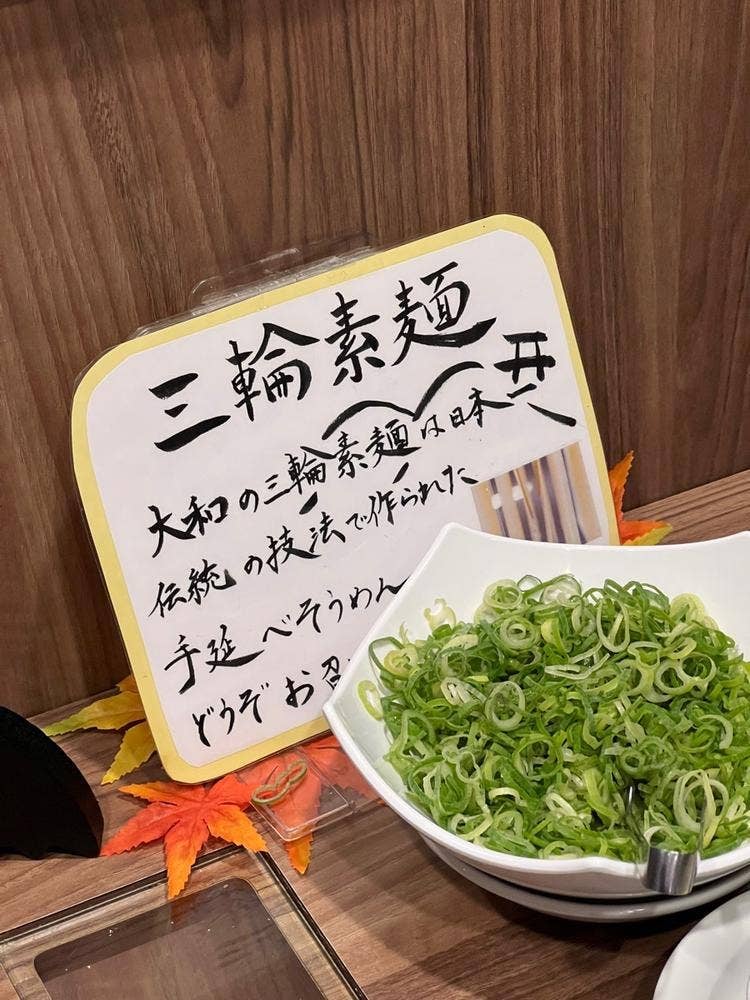 三輪素麺
大和の三輪素麺は日本
伝統の技法で作られた
手延べそうめん
どうぞお召